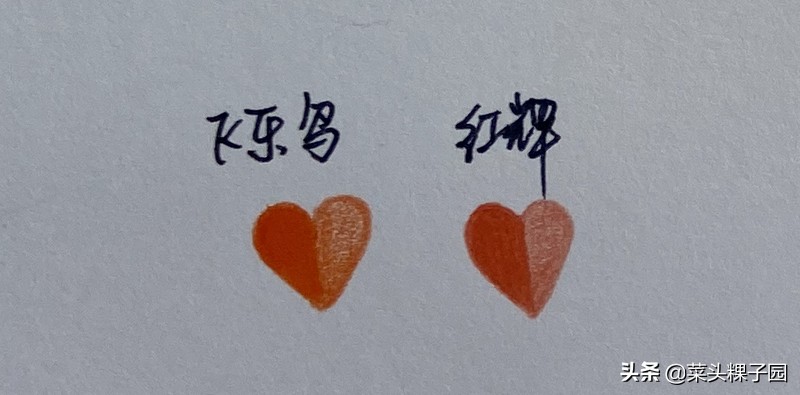 飞乐鸟 红辉
头条 @菜头粿子园